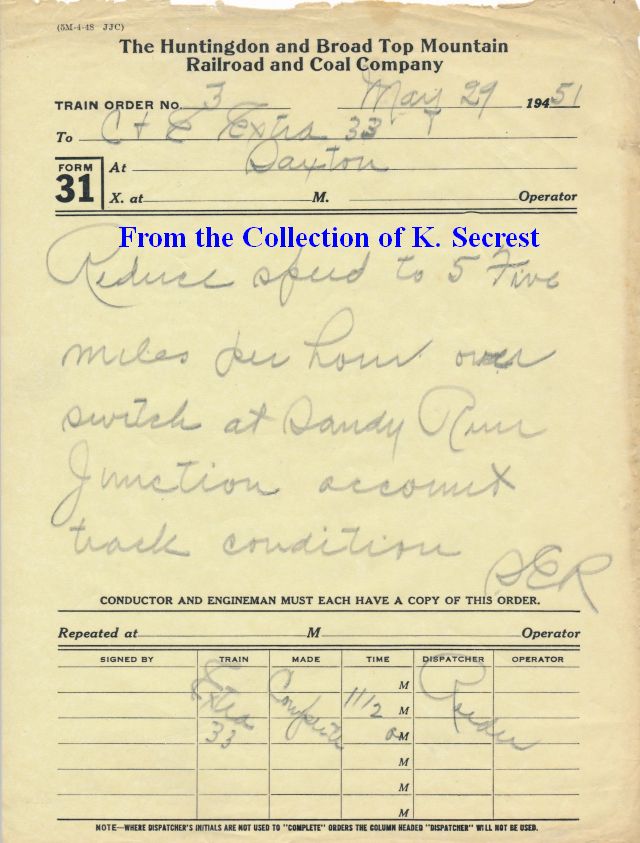 (5M-4-48 JJC)
The Huntingdon and Broad Top Mountain
Railroad and Coal Company
TRAIN ORDER No. 3 May 29 19451
To C + E Extra 33 T
FORM 31
At Saxton
X. at M. Operator
From the Collection of K. Secrest
Reduce speed to 5 Five
miles per hour over
switch at Sandy Run
Junction account
track condition
SER
CONDUCTOR AND ENGINEMAN MUST EACH HAVE A COPY OF THIS ORDER.
Repeated at M Operator
SIGNED BY TRAIN MADE TIME DISPATCHER OPERATOR
Extra 33 Complete 1112 aM Reeder
M
M
M
M
M
NOTE—WHERE DISPATCHER'S INITIALS ARE NOT USED TO "COMPLETE" ORDERS THE COLUMN HEADED "DISPATCHER" WILL NOT BE USED.